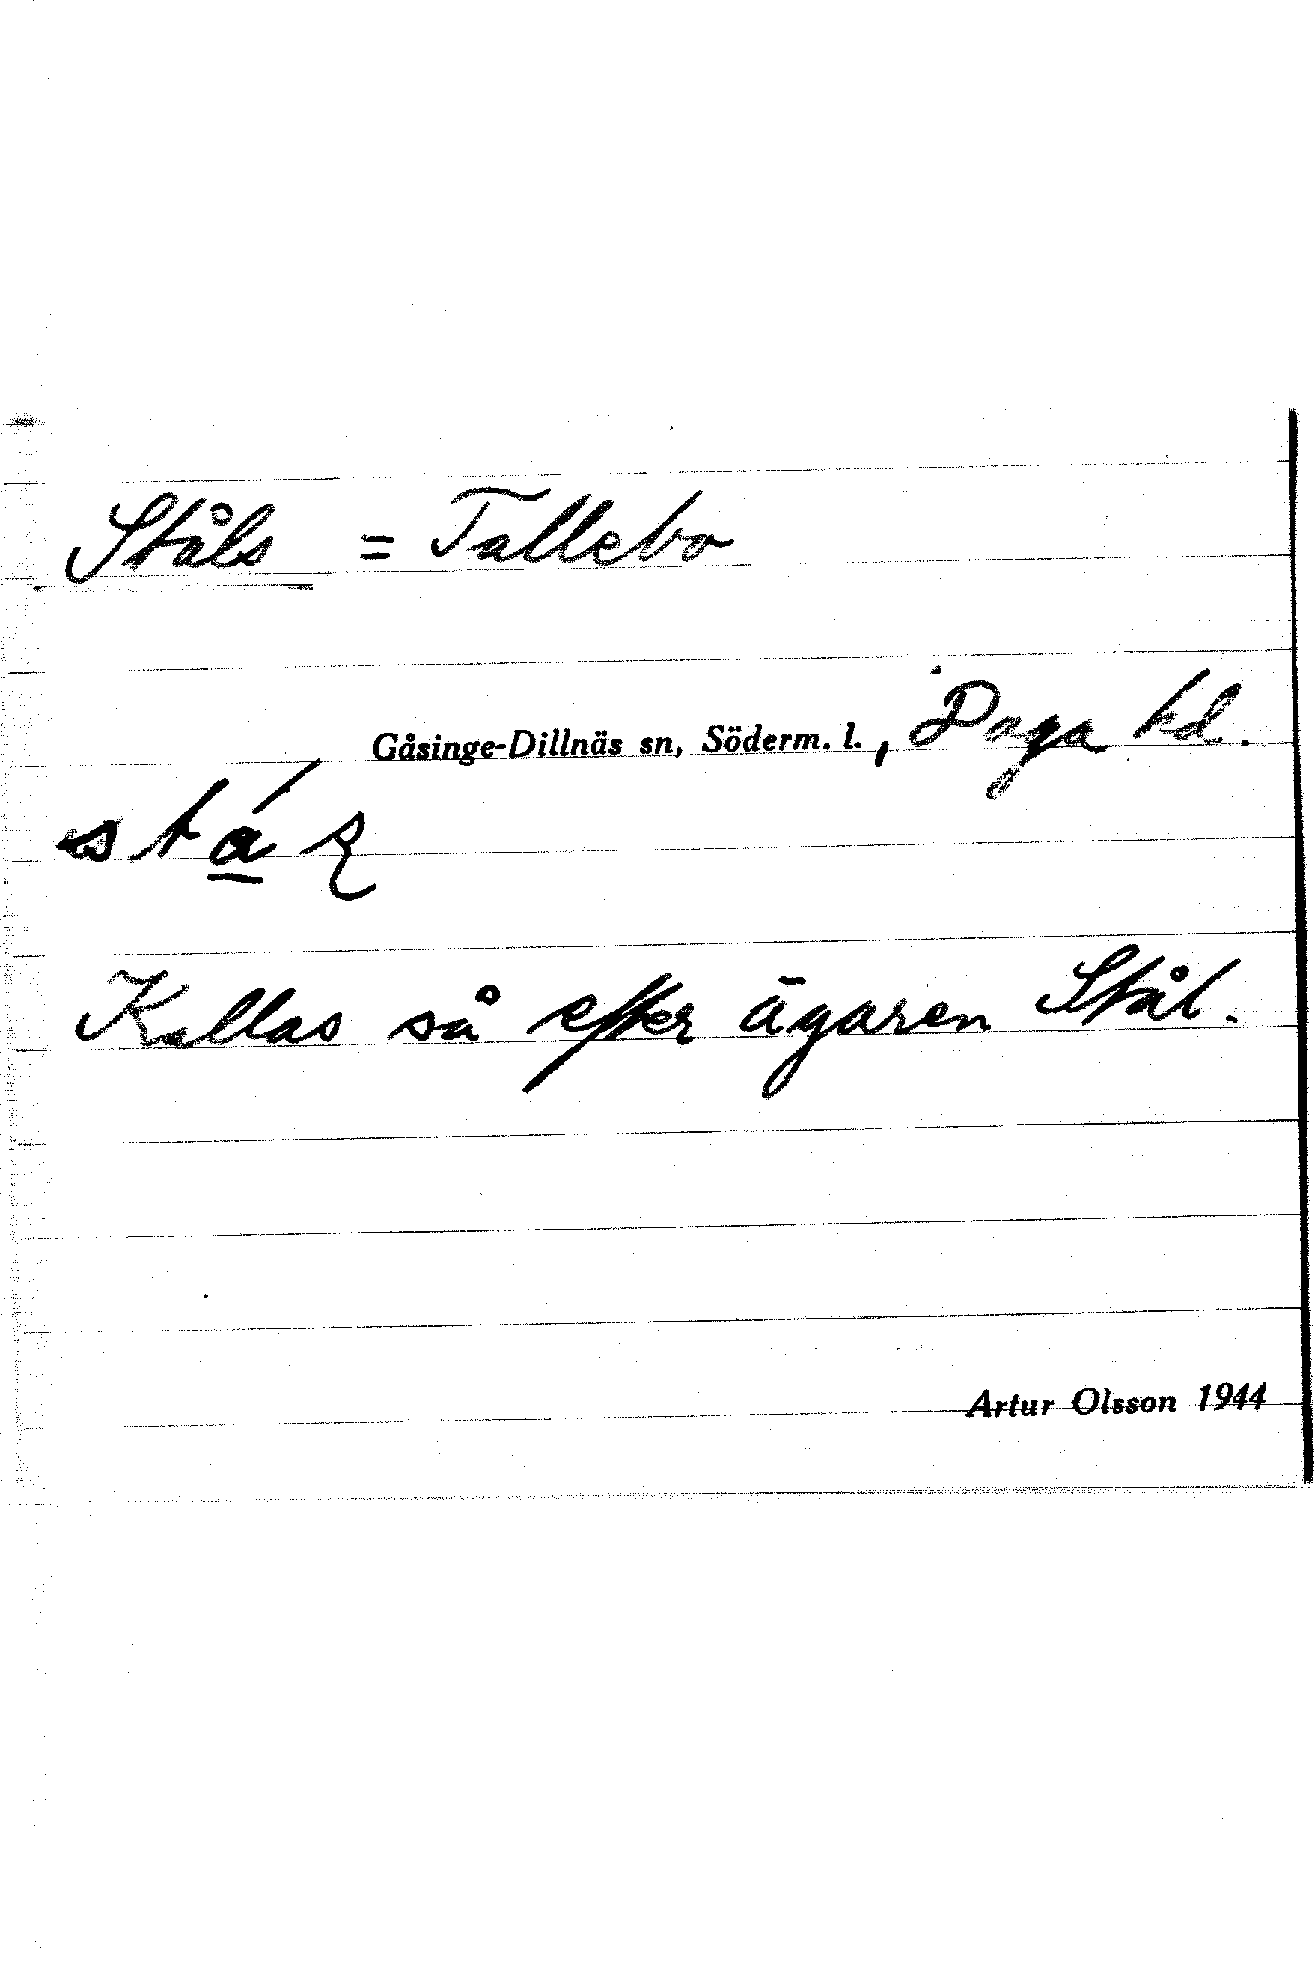 Ståls = Tallebo
Gåsinge-Dillnäs sn, Söderm. l., Daga hd.
Kallas så efter ägaren Stål.
Artur Olsson 1944